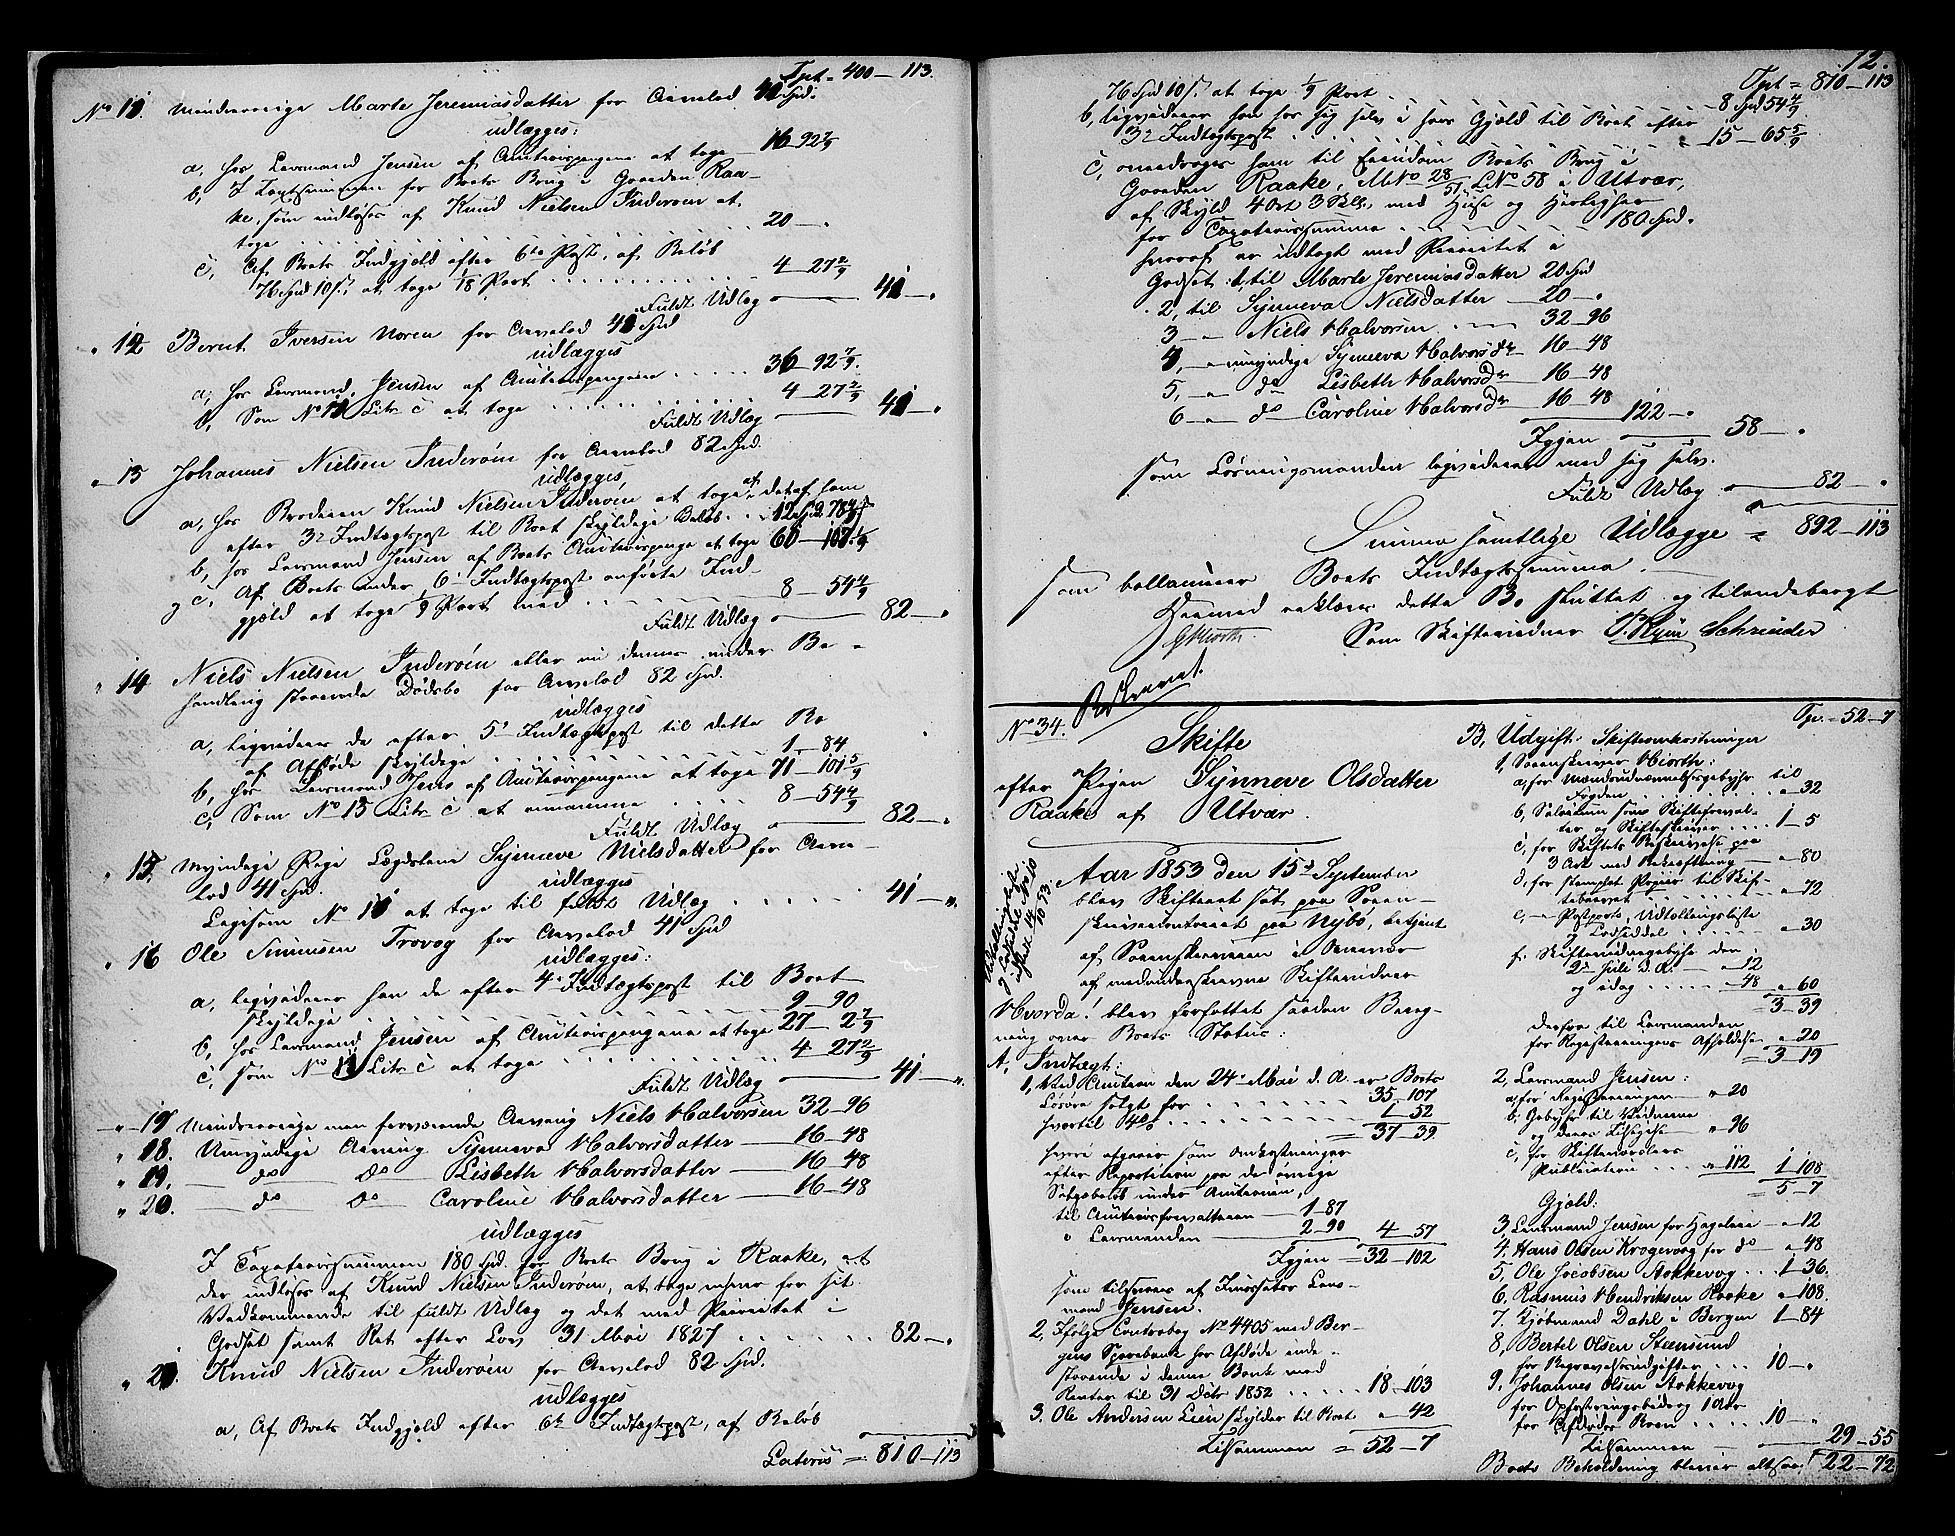 Tpt = 400 — 113.
No 11. Mindreaarige Marte Jeremiasdatter for Arvelod 41 Spd.
udlægges:
a, hos Lensmand Jensen af Auctionspengene at tage — 16 – 92 7/9
b, I Taxtsummen for Boets Brug i Gaarden Raa-
ke, som indløses af Knud Nielsen Inderøen at
tage . . . . 20 — „
c, Af Boets Indgjæld efter 6te Post, af Beløb
76 Spd 10 s. at tage 1/18 Part . . . . 4 — 27 2/9
Fuldt Udlæg — 41 — „
„ 12 Bernt Iversen Noren for Arvelod 41 Spd
udlægges
a, hos Lensmand Jensen af Auctionspengene . . . . 36 – 92 7/9.
b, Som No 11 Litr. c at tage . . . . 4 – 27 2/9
Fuldt Udlæg — 41 — „
„ 13 Johannes Nielsen Inderøen for Arvelod 82 Spd.
udlægges,
a, hos Broderen Knud Nielsen Inderøen at tage af det af ham
efter 3die Indtægtspost til Boet skyldige Beløb . . 12 Spd 78 4/9
b, hos Lensmand Jensen af Boets Auctionspenge at tage 60 — 107 1/9
og c, Af Boets under 6te Indtægtspost anførte Ind-
gjæld at tage 1/9 Part med . . . . 8 — 54 4/9
Fuldt Udlæg — 82 — „
„ 14 Niels Nielsen Inderøen eller nu dennes under Be-
handling staaende Dødsbo for Arvelod 82 Spd.
udlægges
a, liqviderer de efter 5te Indtægtspost til dette Bo
af Afdøde skyldige . . . . 1 — 84
b, hos Lensmand Jens af Auctionspengene at tage 71 — 101 5/9
c, Som No 13 Litr. c at annamme . . . . 8 — 54 4/9
Fuldt Udlæg — 82 — „
„ 15. Myndige Pige Synneve Nielsdatter for Arve-
lod 41 Spd.
udlægges
Ligesom No 11 at tage til fuldt Udlæg . . . . 41 — „
„ 16 Ole Simensen Trovog for Arvelod 41 Spd
udlægges:
a, liqviderer han de efter 4de Indtægtspost til Boet
skyldige . . . . 9 — 90
b, hos Lensmand Jensen af Auctionspengene at tage 27 — 2 7/9
c, som No 11 Litr. c at tage . . . . 4 — 27 2/9
Fuldt Udlæg — 41 — „
„ 17 Mindreaarige men forværende Arving Niels Halvorsen 32 — 96
„ 18. Umyndige Arving Synneva Halvorsdatter — 16 — 48
„ 19. — do do — Lisbeth Halvorsdatter — 16 — 48
„ 20. — do do — Caroline Halvorsdatter — 16 — 48
udlægges
I Taxationssummen 180 Spd. for Boets Brug i Raake, at
der indløses af Knud Nielsen Inderøen, at tage enhver for sit
Vedkommende til fuldt Udlæg og det med Prioritet i
Godset samt Ret efter Lov 31 Mai 1827 . . . . 82 — „
„ 21. Knud Nielsen Inderøen for Arvelod 82 Spd.
udlægges
a, Af Boets Indgjæld efter 6te Indtægtspost, af Beløb
Lateris = 810 — 113
12.
Tpt = 810 — 113
76 Spd 10 s. at tage 1/9 Part . . 8 Spd 54 4/9
b, liqviderer han hos sig selv i hans Gjæld til Boet efter
3die Indtægtspost . . . . 15 — 65 5/9
c, overdrages ham til Eiendom Boets Brug i
Gaarden Raake, M No 28/51, L No 58 i Utvær,
af Skyld 4 Ort 3 Skl., med Huse og Herligheder
for Taxationssumma . . . . 180 Spd.
hvoraf er udlagt med Prioritet i
Godset: 1, til Marte Jeremiasdatter 20 Spd
2, til Synneva Nielsdatter — 20 — „
3 — „ Niels Halvorsen . . . 32 — 96
4, — „ umyndige Synneva Halvorsdr — 16 — 48
5, — „ do Lisbeth Halvorsdr — 16 — 48
6 — „ do Caroline Halvorsdr — 16 — 48
122 — „
Igjen — 58 — „
som Løsningsmanden liqviderer med sig selv.
Fuldt Udlæg — 82 — „
Summa samtlige Udlægge = 892 — 113
som ballancerer Boets Indtægtssumma. —
Hermed erklæres dette Bo sluttet og tilendebragt
Hiorth. Som Skiftevidner T. Ryin Schrøder
No 34.
Skifte
efter Pigen Synneve Olsdatter
Raake af Utvær.
Aar 1853 den 15de September
blev Skifteret sat paa Soren-
skrivercontoiret paa Nybø, betjent
af Sorenskriveren i Overvær
af medunderskrevne Skiftevidner
Hvorda! blev forfattet saadan Bereg-
ning over Boets Status:
A, Indtægt:
1, Ved Auction den 24de Mai d. A. er Boets
Løsøre solgt for . . . . 35 — 107
hvortil 4 % . . . . 1 — 52
= 37 — 39
hvori afgaaer som Omkostninger
efter Repartition paa de øvrige
Salgsbeløb under Auctionen,
til Auctionsforvalteren — 1 — 87
„ Lensmanden — 2 — 90 4 — 57
Igjen = 32 — 102
som tilsvares af Incassator Lens-
mand Jensen.
2, Ifølge Contrabog No 4405 med Ber-
gens Sparebank har Afdøde inde-
staaende i denne Bank med
Renter til 31 Decbr 1852 . . . . 18 — 103
3. Ole Andersen Leen skylder til Boet „ 42
Tilsammen = 52 — 7
Tp. = 52 — 7
B, Udgift: Skifteomkostninger
1, Sorenskriver Hiorth:
a, for Mændsudnævnelsesgebyhr til
Fogden . . . . „ 32
b, Salarium som Skifteforval-
ter og Skifteskriver . . . . 1 — 5
c, for Skiftets Beskrivelse paa
3 Ark med Bekræftning — „ 80
d, for stemplet Papiir til Skif-
tebrevet . . . . „ 72
e, — „ Postporto, Udtællingsliste
og Lodseddel . . . . „ 30
f. Skiftevidnegebyhr den
2den Juli d. A. — „ 12
og idag . . . . „ 48 „ 60
= 3 — 39
derfra til Lensmanden
for Registreringens Afholdelse „ 20
= 3 — 19
2, Lensmand Jensen:
a, for Registreringen — „ 20
b, Gebyhr til Vidnerne
og deres Tilsigelse — „ 96
c, for Skifteværelsens
Publication . . . „ 112 1 — 108
= 5 — 7
Gjæld.
3, Lensmand Jensen for Hageleie — „ 12
4. Hans Olsen Krogevog for do — „ 48
5, Ole Jacobsen Stokkevog . . . 1 — 36.
6. Rasmus Hendriksen Raake „ 108.
7. Kjøbmand Dahl i Bergen 1 — 84
8, Bertel Olsen Steensund
for Begravelsesudgifter . . . 10 — „
9, Johannes Olsen Stokkevog
for Opfostringsbidrag 1 Aar
for Afdødes Barn . . . . 10 — „
Tilsammen — 29 — 55
Boets Beholdning bliver altsaa 22 — 72